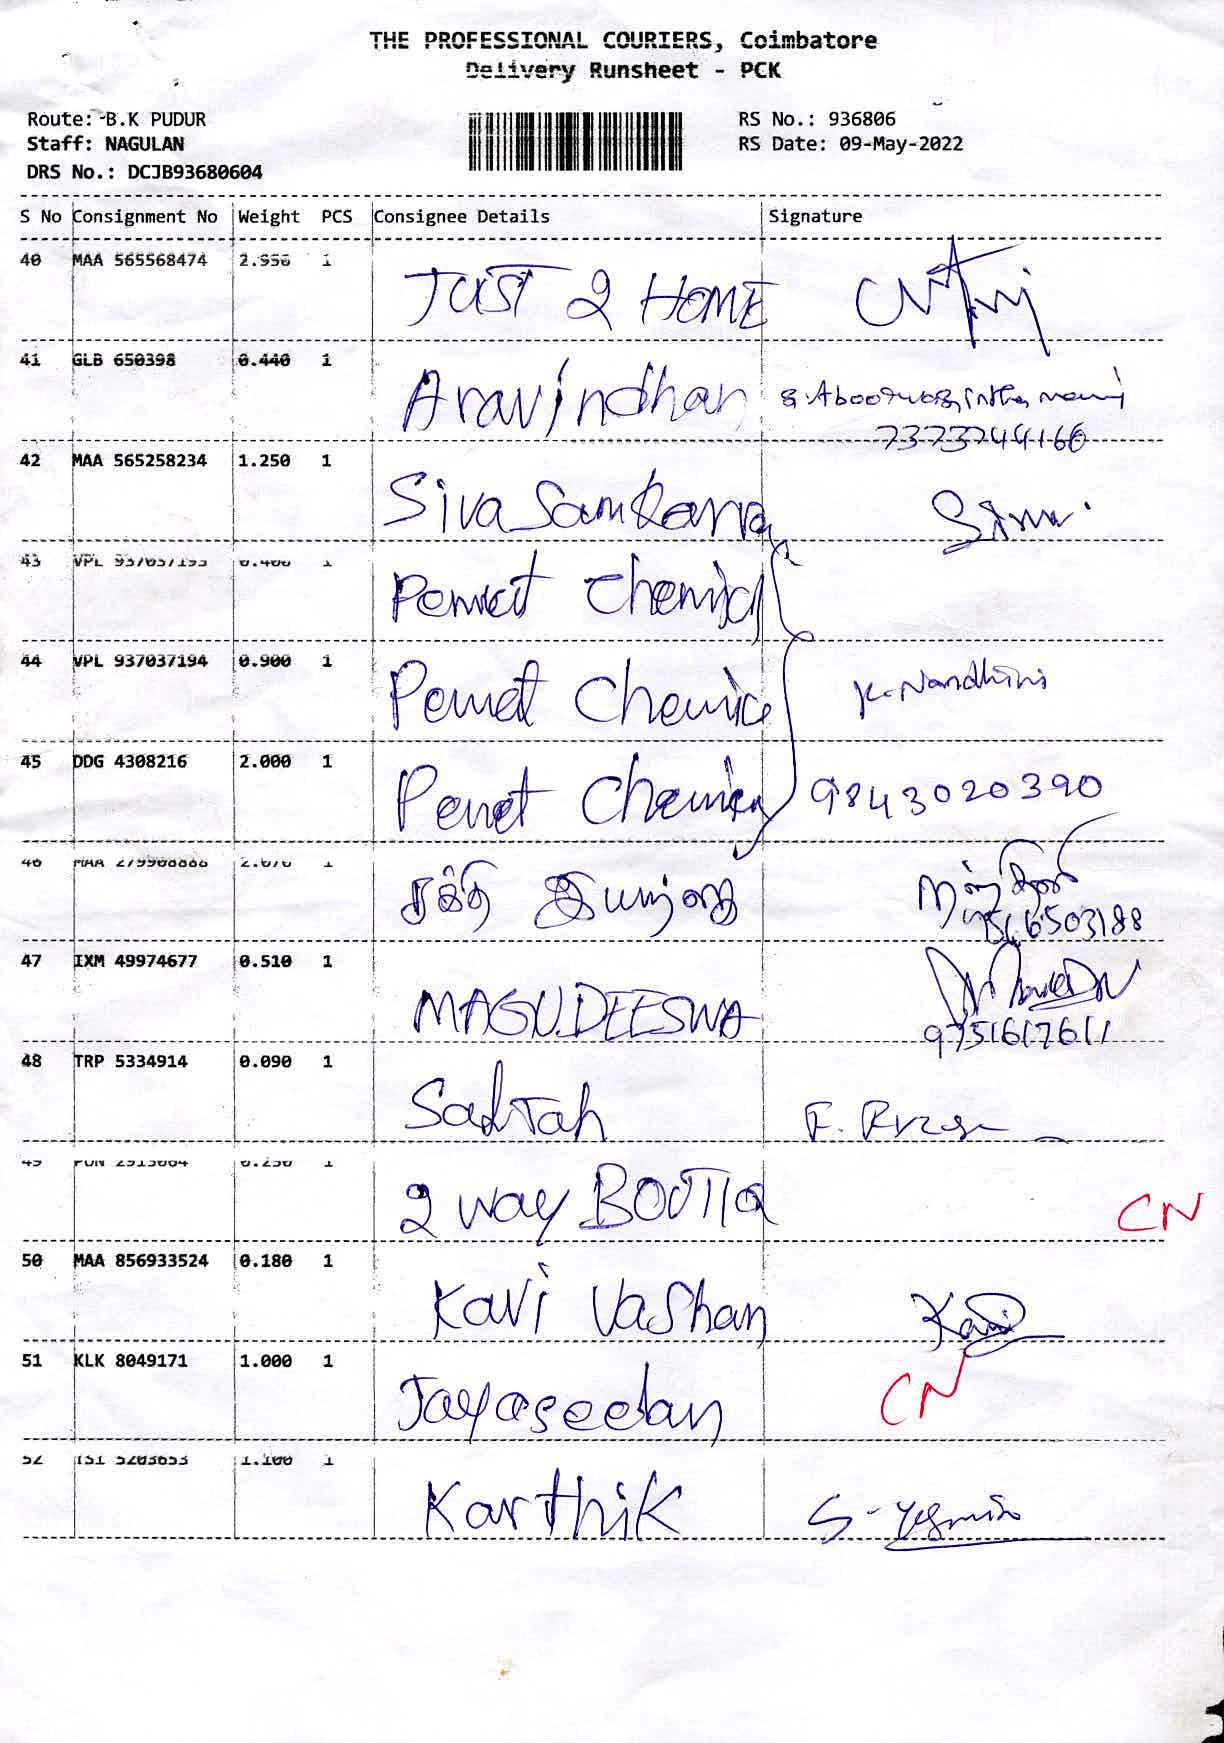 THE PROFESSIONAL COURIERS, Coimbatore
Delivery Runsheet - PCK
Route: B.K PUDUR
RS No.: 936806
Staff: NAGULAN
RS Date: 09-May-2022
DRS No.: DCJB93680604
S No Consignment No Weight PCS Consignee Details Signature
40 MAA 565568474 2.956 1
JUST 2 HOME
41 GLB 650398 0.440 1
Aravindhan
7373744166
42 MAA 565258234 1.250 1
Siva Sankara
43 VPL 937037193 0.400 1
Chemical
44 VPL 937037194 0.900 1
Chemica
K. Nandhini
45 DDG 4308216 2.000 1
Chemica 9843020390
46 MAA 279908888 2.070 1
சக்தி
47 IXM 49974677 0.510 1
MAGUDEESWA
9751617611
48 TRP 5334914 0.090 1
49 PON 2913064 0.250 1
2 way BOUTIQ CN
50 MAA 856933524 0.180 1
Kavi Vashan Kavi
51 KLK 8049171 1.000 1
Jayaseelan CN
52 TSI 5203653 1.100 1
Karthik S-Yasmin